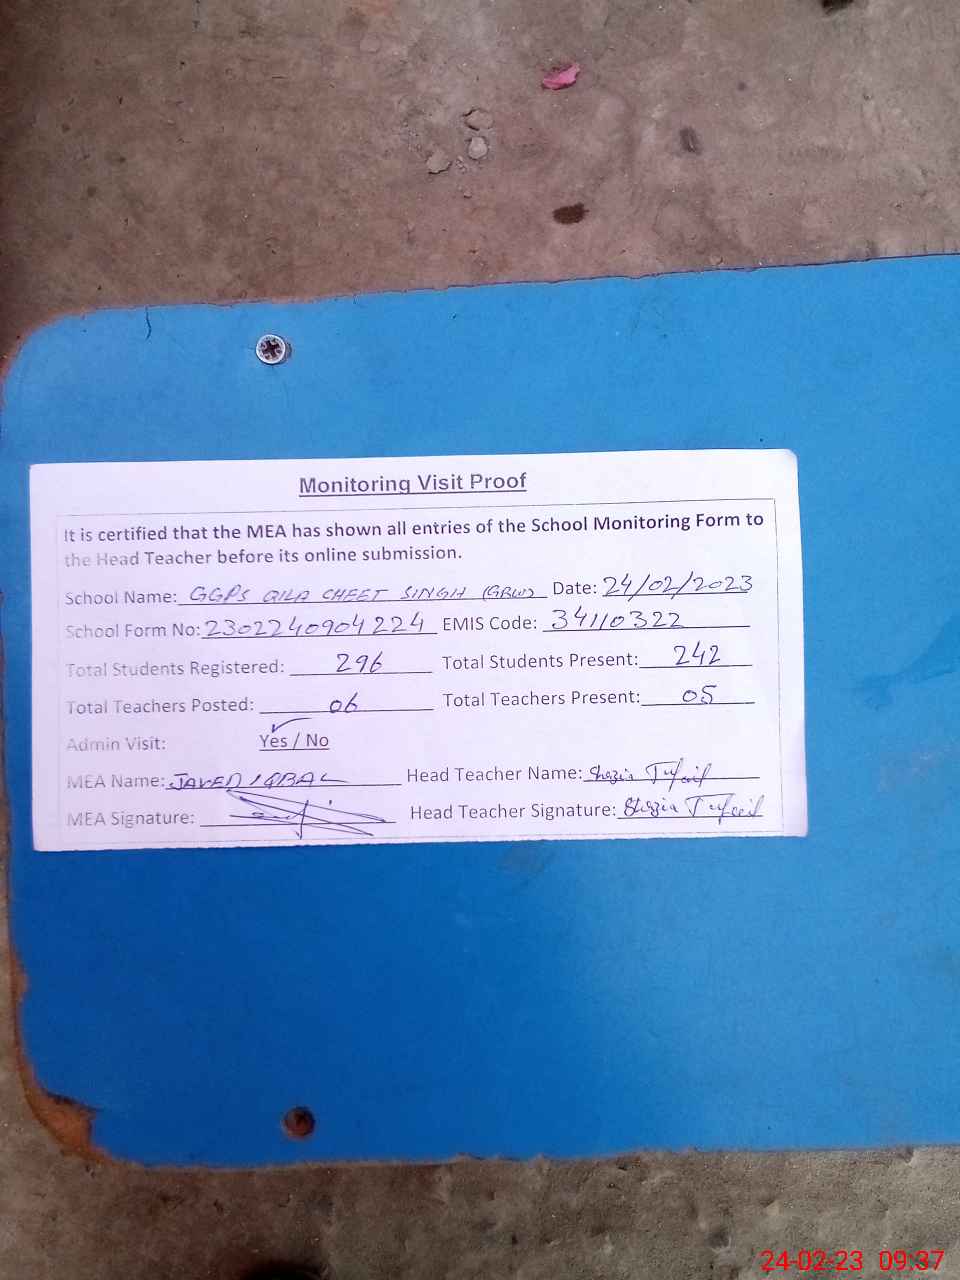 Monitoring Visit Proof
It is certified that the MEA has shown all entries of the School Monitoring Form to
the Head Teacher before its online submission.
School Name: GGPS QILA CHEET SINGH (GRW) Date: 24/02/2023
School Form No: 2302240904224 EMIS Code: 34110322
Total Students Registered: 296 Total Students Present: 242
Total Teachers Posted: 06 Total Teachers Present: 05
Admin Visit: Yes / No
MEA Name: JAVED IQBAL Head Teacher Name: Shazia Tufail
MEA Signature: Head Teacher Signature: Shazia Tufail
24-02-23 09:37